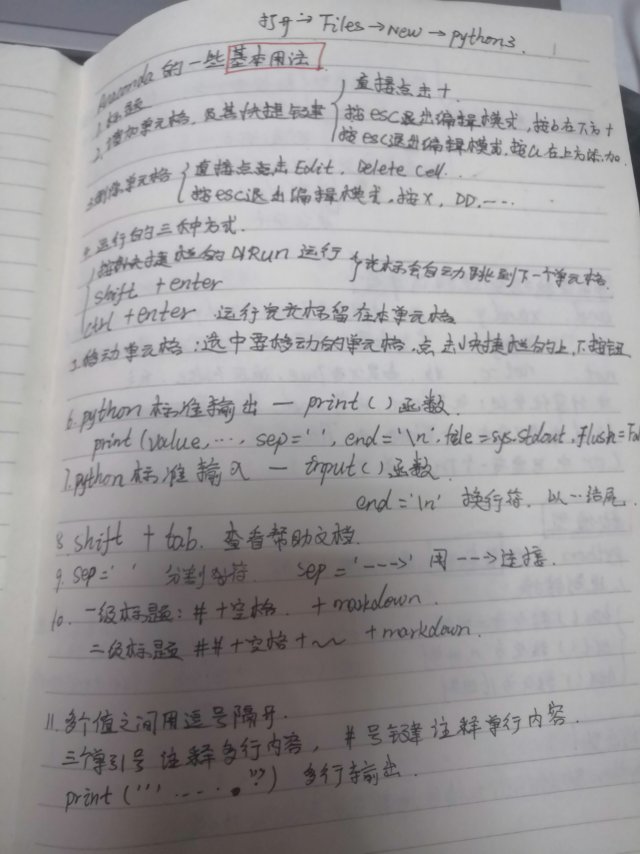 打开→Files→New→python3.
Anaconda 的一些基本用法
1.标题
2.增加单元格,及其快捷键
直接点击+
按esc退出编辑模式,按b在下方+
按esc退出编辑模式,按a在上方添加
3.删除单元格
直接点击Edit,Delete Cell...
按esc退出编辑模式,按X,DD.---
4.运行的三种方式.
按快捷栏的 Run 运行
shift +enter
光标会自动跳到下一个单元格.
ctrl +enter 运行完光标留在本单元格
5.移动单元格:选中要移动的单元格,点击快捷栏的上,下按钮
6.python 标准输出 — print()函数.
print(value,…, sep=' ', end='\n', file=sys.stdout, flush=Fal
7.python 标准输入 — input()函数.
end='\n' 换行符.以…结尾.
8 shift + tab. 查看帮助文档.
9. sep=' ' 分割符. sep='--->' 用-->连接.
10. 一级标题:#+空格. +markdown.
二级标题 ##+空格+~~ +markdown.
11.多个值之间用逗号隔开.
三个单引号注释多行内容, #号键注释单行内容.
print(''' ---. ''') 多行输出.